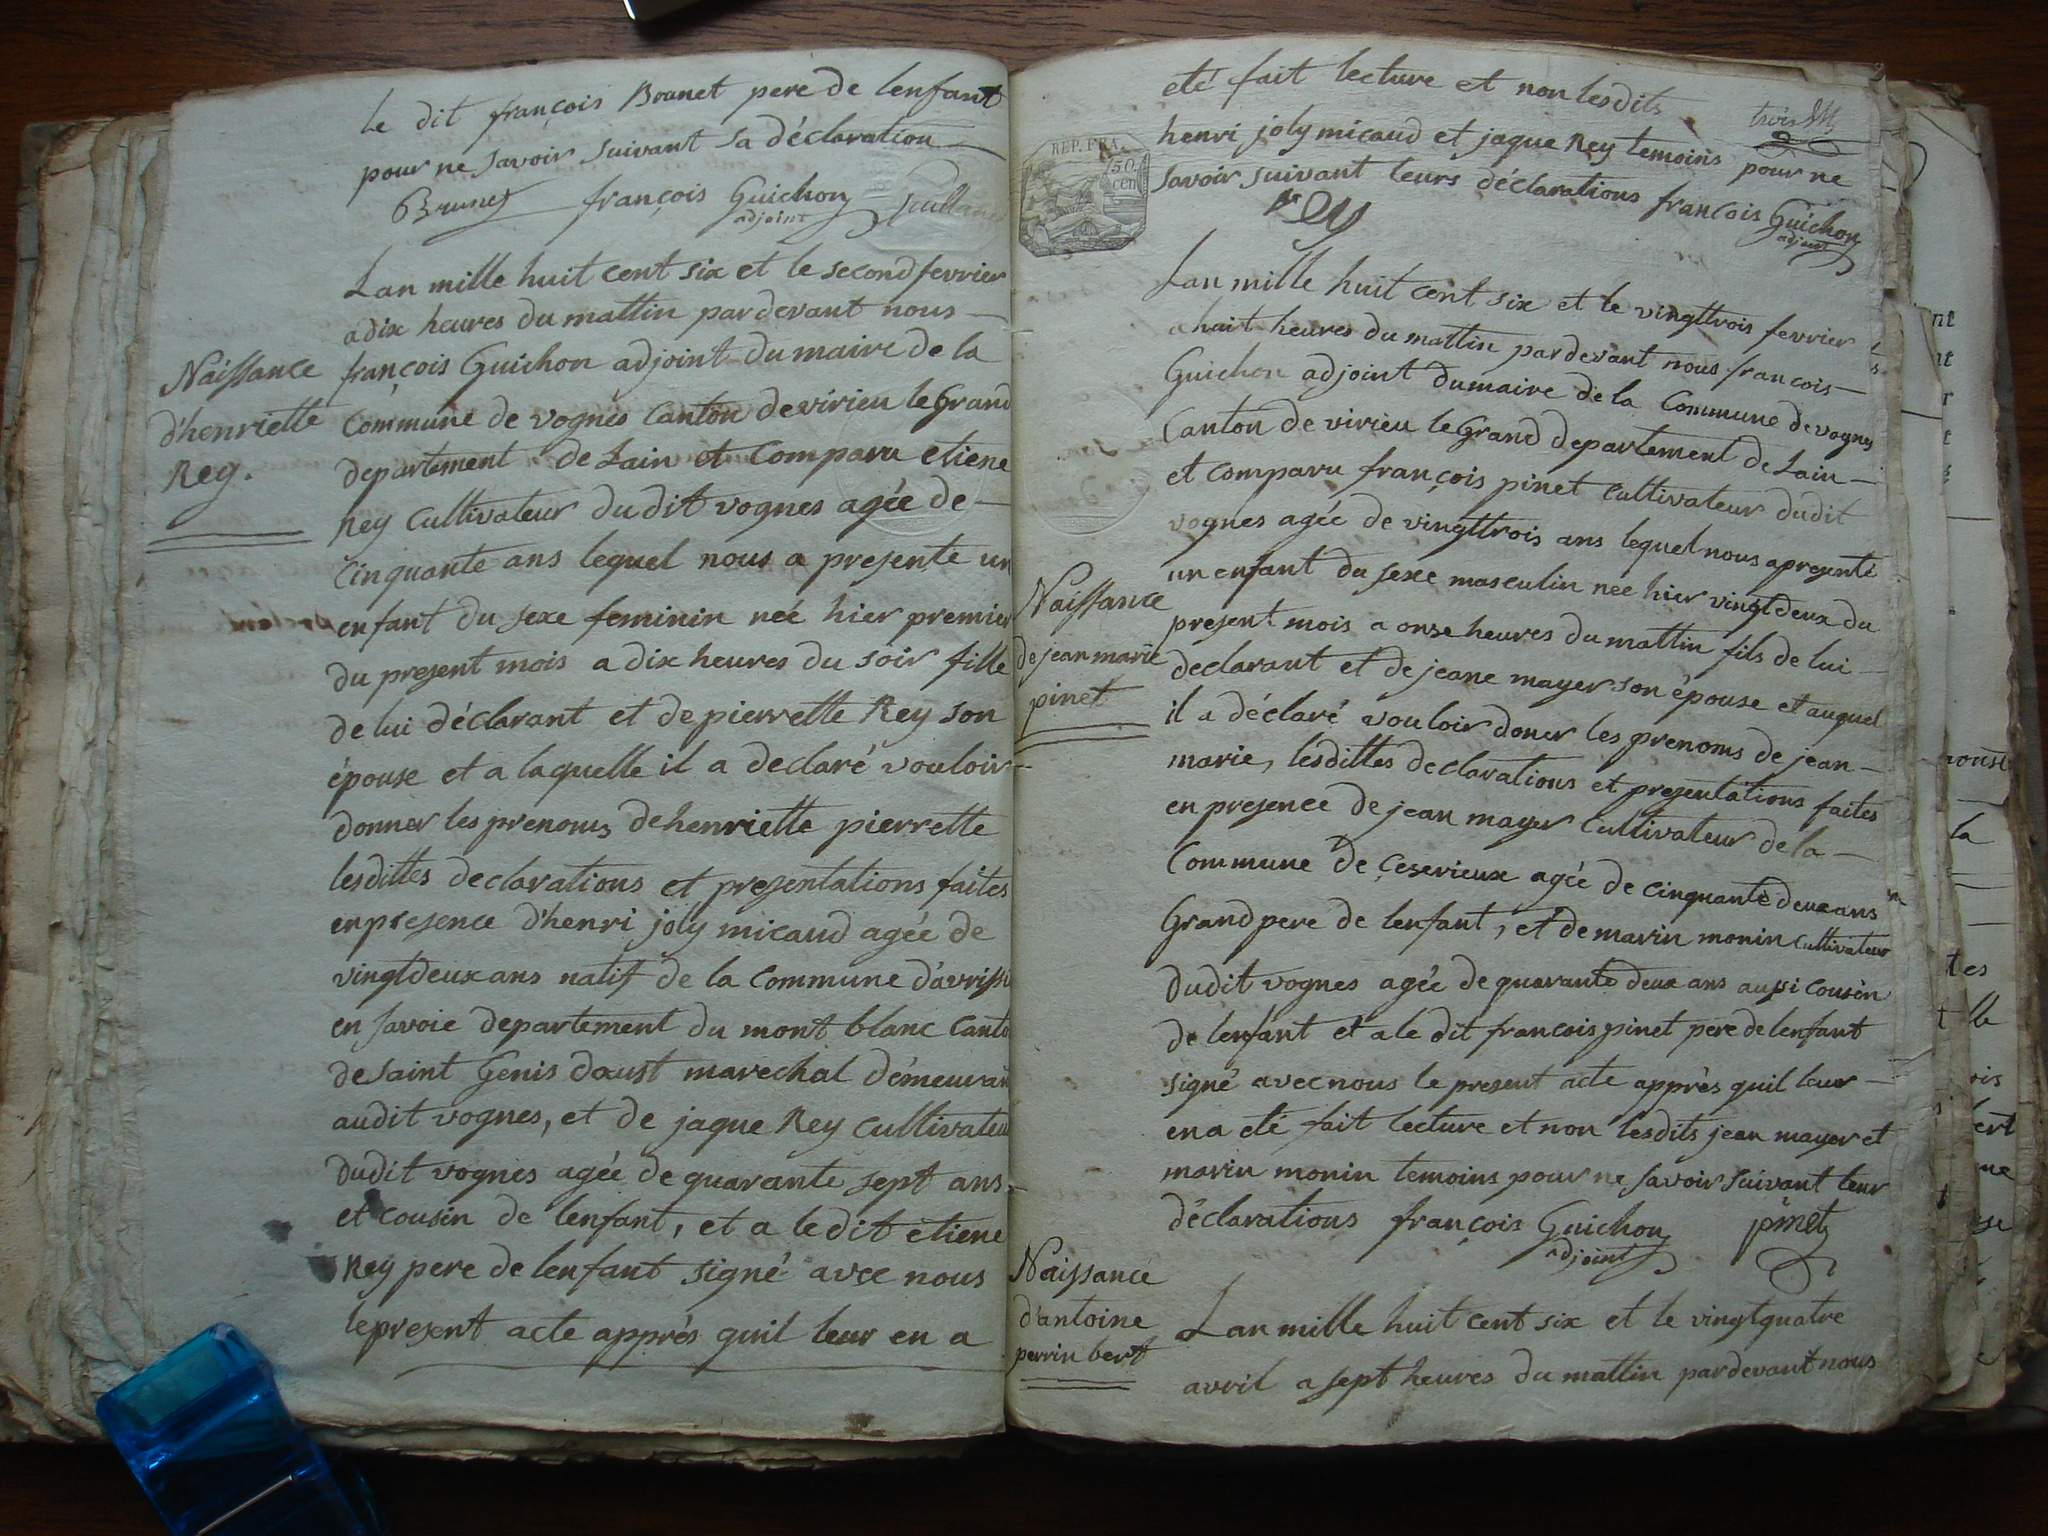 le dit françois Brunet pere de lenfant
pour ne savoir suivant sa déclaration
Brunet françois Guichon
adjoint
Naissance
d'henriette
Rey.
Lan mille huit cent six et le second fevrier
a dix heures du mattin pardevant nous
françois Guichon adjoint du maire de la
Commune de vognes Canton de virieu le Grand
departement de Lain et Comparu etiene
Rey Cultivateur du dit vognes agée de
Cinquante ans lequel nous a presente un
enfant du sexe feminin neé hier premier
du present mois a dix heures du soir fille
de lui déclarant et de pierrette Rey son
épouse et a laquelle il a declaré vouloir
donner les prenoms de henriette pierrette
lesdittes declarations et presentations faites
en presence d'henri joly micaud agée de
vingtdeux ans natif de la Commune d'avrissi
en savoie departement du mont blanc Canto
de saint Genis daust marechal démeurant
audit vognes, et de jaque Rey Cultivateu
dudit vognes agée de quarante sept ans
et cousin de lenfant, et a le dit etiene
Rey pere de lenfant signé avec nous
le present acte apprés quil leur en a
eté fait lecture et non lesdits
REP. FRA.
50
cen
henri joly micaud et jaque Rey temoins pour ne
savoir suivant leurs déclarations françois Guichon
adjoint
Rey
Lan mille huit cent six et le vingttrois fevrier
a huit heures du mattin pardevant nous francois
Guichon adjoint dumaire de la Commune de vognes
Canton de virieu le Grand departement de Lain
et comparu françois pinet cultivateur dudit
vognes agée de vingttrois ans lequel nous a presenté
un enfant du sexe masculin née hier vingtdeux du
present mois a onse heures du mattin fils de lui
declarant et de jeane mayer son épouse et auquel
il a déclaré vouloir doner les prenoms de jean
marie, lesdittes declarations et presentations faites
en presence de jean mayer Cultivateur de la
Commune de Ceserieux agée de cinquante deux ans
Grand pere de lenfant, et de marin monin Cultivateur
dudit vognes agée de quarante deux ans aussi cousin
de lenfant et a le dit francois pinet pere de lenfant
signé avec nous le present acte apprès quil leur
en a eté fait lecture et non lesdits jean mayer et
marin monin temoins pour ne savoir suivant leur
déclarations françois Guichon pinet
adjoint
Naissance
de jean marie
pinet
Naissance
d'antoine
perrin bert
Lan mille huit cent six et le vingtquatre
avril a sept heures du mattin pardevant nous